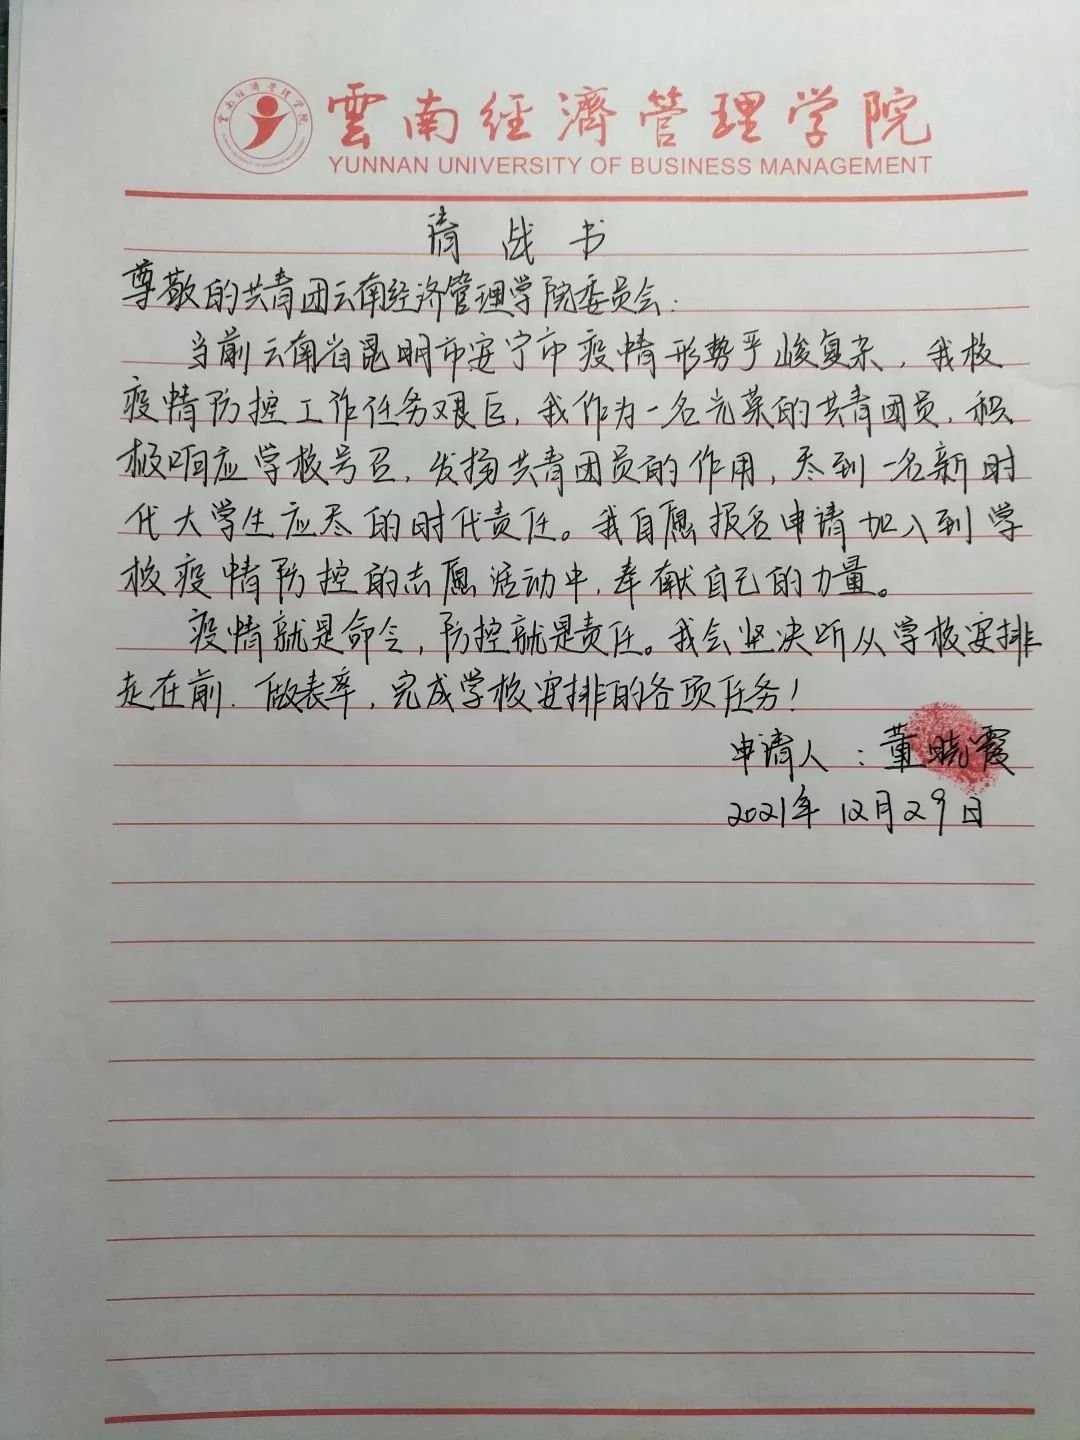 雲南經濟管理学院
YUNNAN UNIVERSITY OF BUSINESS MANAGEMENT
请战书
尊敬的共青团云南经济管理学院委员会:
当前云南省昆明市安宁市疫情形势严峻复杂，我校
疫情防控工作任务艰巨，我作为一名光荣的共青团员，积
极响应学校号召，发扬共青团员的作用，尽到一名新时
代大学生应尽的时代责任。我自愿报名申请加入到学
校疫情防控的志愿活动中，奉献自己的力量。
疫情就是命令，防控就是责任。我会坚决听从学校安排
走在前．做表率，完成学校安排的各项任务！
申请人：董晓霞
2021年12月29日